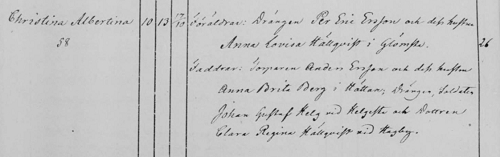 Christina Albertina 10 13 Föräldrar: Drängen Per Eric Ersson och dess hustru
58 Anna Lovisa Hällqvist i Glömsta. 26
Faddrar: Torparen Anders Ersson och dess hustru
Anna Brita Berg i Hättan, Drängen, Soldaten
Johan Gustaf Helg vid Helgesta och Dottren
Clara Regina Hällqvist vid Hagby.